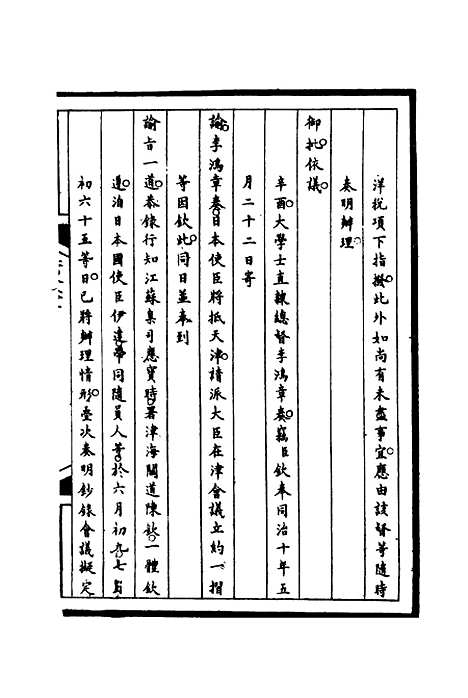 洋稅項下指撥此外如尚有未盡事宜應由該督等隨時
奏明辦理
御批依議
辛酉大學士直隸總督李鴻章奏竊臣欽奉同治十年五
月二十二日寄
諭李鴻章奏日本使臣將抵天津請派大臣在津會議立約一摺
等因欽此同日並奉到
諭旨一道恭錄行知江蘇臬司應寶時署津海關道陳欽一體欽
遵洎日本國使臣伊達帶同隨員人等於六月初九七
初六十五等日已將辦理情形叠次奏明鈔錄會議擬定